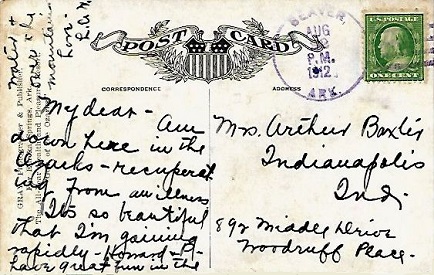 POST CARD
CORRESPONDENCE
ADDRESS
BEAVER,
AUG
P.M.
1912
ARK.
U.S. POSTAGE
ONE CENT
My dear - Am
down here in the
Ozarks - recuperat
ing from an illness
It's so beautiful
that I'm gaining
rapidly - Howard & I
have great fun in the
water +
mountains
Love -
Mrs. Arthur Baxter
Indianapolis
Ind.
892 Middle Drive
Woodruff Place.